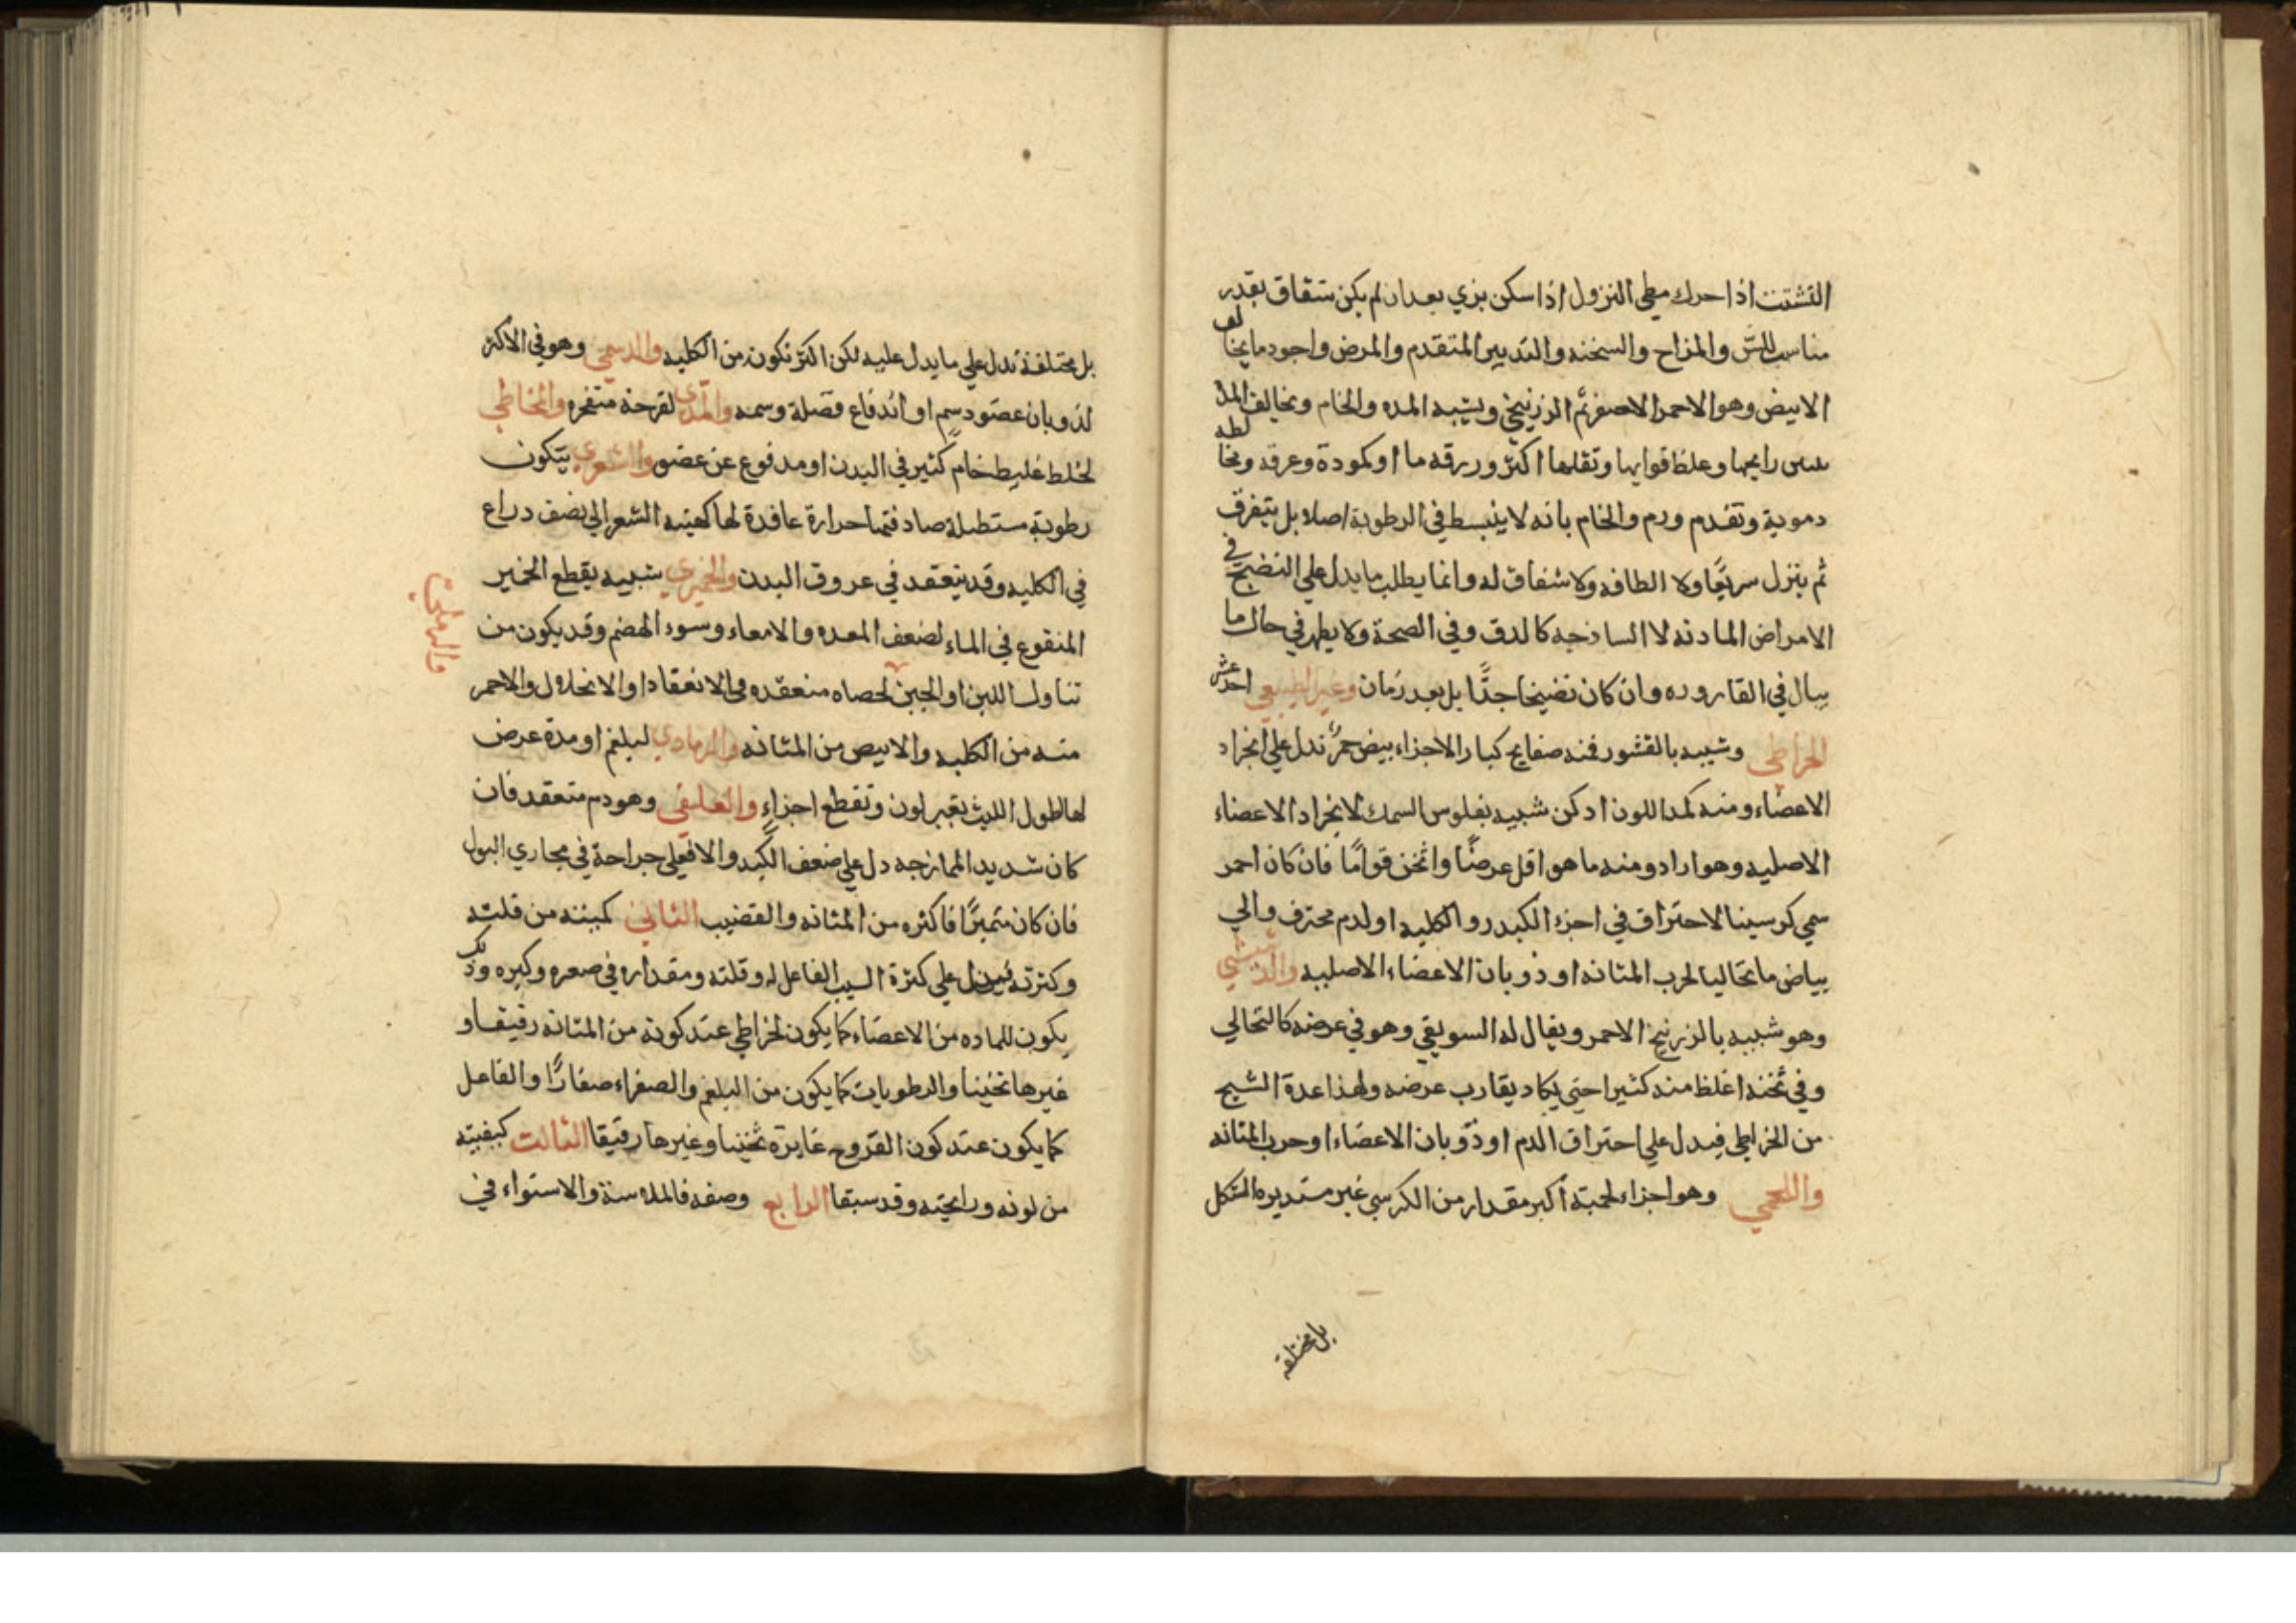 التشتت اذا حرك بطي النزول اذا سكن بزي بعد ان لم يكن شقاق بقدر
مناسب للسن والمزاج والسخنه والتدبير المتقدم والمرض واجود ما يخالف
الابيض وهو الاحمر الاصفر ثم الزرنيخي ويشبه المده والخام ويخالف المده
بنتن رايحها وغلظ قوامها وتقلها اكثر وزرقه ما او كمودة وعرقه ومخالطه
دموية وتقدم ورم والخام بانه لا ينبسط في الرطوبة اصلا بل يتفرق
ثم ينزل سريعًا ولا الطافه ولا شفاف له وانما يطلب ما يدل علي النضج في
الامراض المادته لا الساذجه كالدق وفي الصحة ولا يظهر في حال ما
يبال في القاروره وان كان نضيخا جدًّا بل بعد زمان وغير الطبيعي احد عشر
الخراطي وشبيه بالقشور فمنه صفايح كبار الاجزاء بيض حمر تدل علي انجراد
الاعضاء ومنه كمد اللون ادكن شبيه بفلوس السمك لانجراد الاعضاء
الاصليه وهو اراد ومنه ما هو اقل عرضًا واثخن قوامًا فان كان احمر
سمي كرسينا لاحتراق في اجزء الكبد رو الكليه او لدم محترف والي
بياض ما نخاليا لجرب المثانه او ذوبان الاعضاء الاصليه والدشيشي
وهو شبيه بالزرنيخ الاحمر ويقال له السويقي وهو في عرضه كالنخالي
وفي ثخنه اغلظ منه كثيرا حتي يكاد يقارب عرضه ولهذا عدة الشيخ
من الخراطي فيدل علي احتراق الدم او ذوبان الاعضاء او جرب المثانه
واللحمي وهو اجزاء لحمية اكبر مقدار من الكرسي غير مستديره الشكل
بل مختلفه
بل مختلفة تدل علي ما يدل عليه لكن اكثر تكون من الكليه والدسمي وهو في الاكثر
لذوبان عضو دسم او اندفاع فضلة وسمه والمدي لقرحة متفجره والمخاطي
لخلط غليظ خام كثير في البدن او مدفوع عن عضو والشعري يتكون
رطوبة مستطيلة صادفتها حرارة عاقدة لها كهيئه الشعر الي نصف دراع
في الكليه وقد ينعقد في عروق البدن والخميري شبيه بقطع الخمير
المنقوع في الماء لضعف المعده والامعاء وسوء الهضم وقد يكون من
تناول اللبن او الجبن لحصاه منعقده في الانعقاد او الانحلال والاحمر
والرملي
منه من الكليه والابيض من المثانه والرمادي لبلغم او مدة عرض
لها لطول اللبث تغير لون وتقطع اجزاء والعلقي وهو دم منعقد فان
كان شديد الممازجه دل علي ضعف الكبد والا فعلي جراحة في مجاري البول
فان كان متميزًا فاكثره من المثانه والقضيب الثاني كميته من قلته
وكثرته فيدل علي كثرة السبب الفاعل له وقلته ومقداره في صغره وكبره وذلك
يكون للماده من الاعضاء كما يكون لخراطي عند كونه من المثانه رقيقا و
غيرها ثخينا والرطوبات كما يكون من البلغم والصفراء صغارًا والفاعل
كما يكون عند كون القروح غايرة ثخينا وغيرها رقيقا الثالث كيفيته
من لونه ورايحته وقد سبقا الرابع وصفه فالملاسة والاستواء في